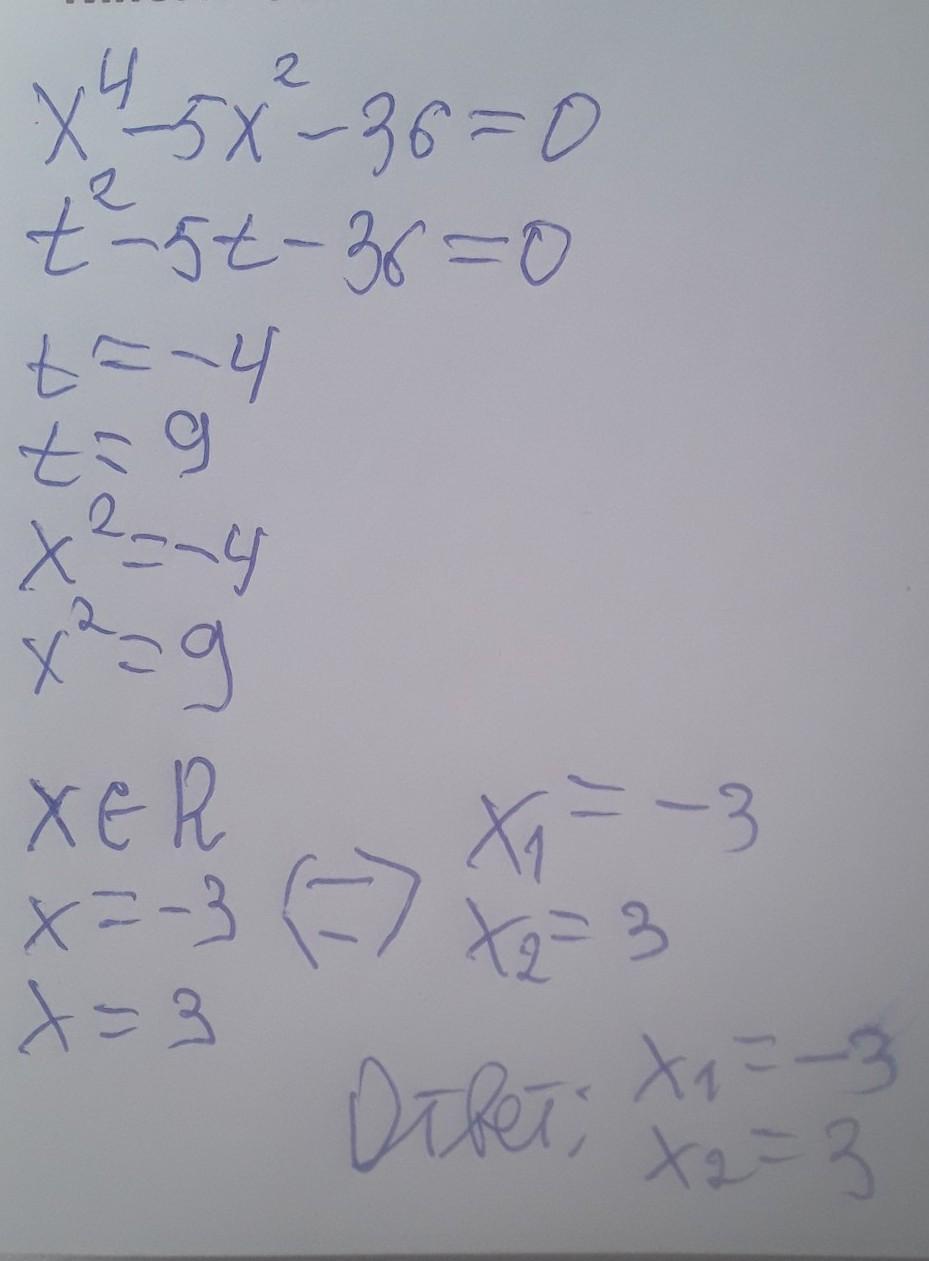 x⁴-5x²-36=0
t²-5t-36=0
t=-4
t=9
x²=-4
x²=9
x∈R
x=-3 ⇔ x₁=-3
x=3 x₂=3
Ответ: x₁=-3
x₂=3